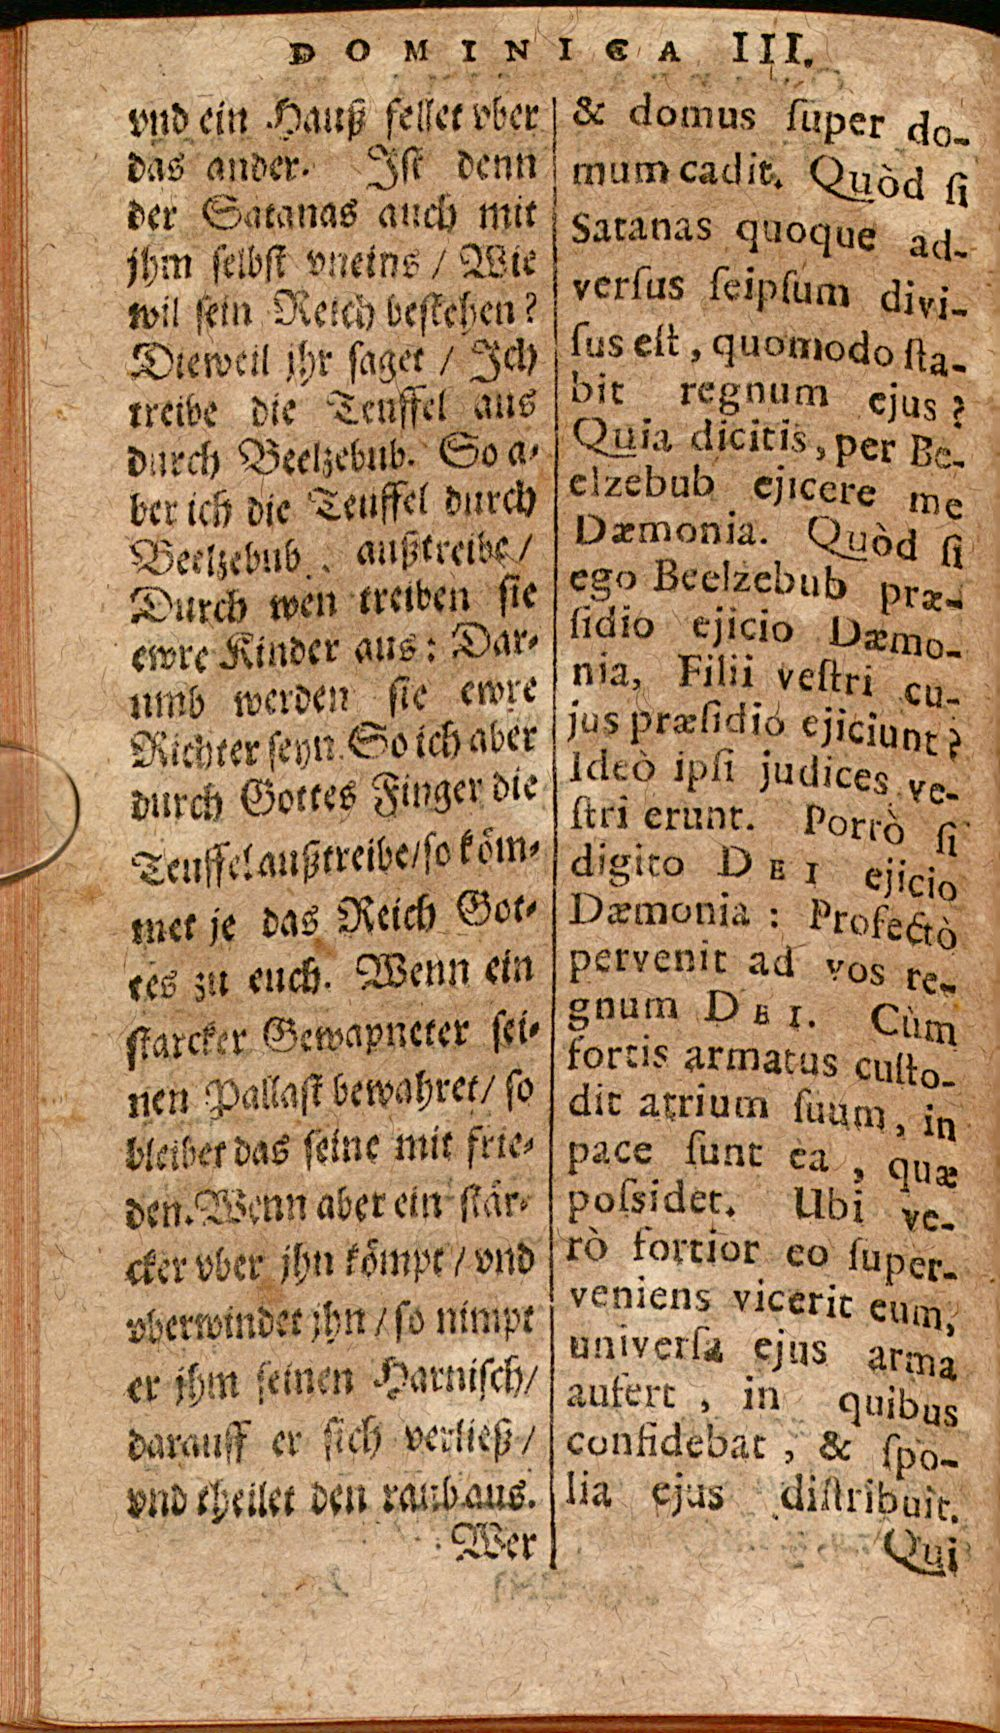 DOMINICA III.
vnd ein Hauß fellet vber
das ander. Jſt denn
der Satanas auch mit
jhm ſelbſt vneins / Wie
wil ſein Reich beſtehen?
Dieweil jhr ſaget / Jch
treibe die Teuffel aus
durch Beelzebub. So a-
ber ich die Teuffel durch
Beelzebub außtreibe /
Durch wen treiben ſie
ewre Kinder aus: Dar-
umb werden ſie ewre
Richter ſeyn. So ich aber
durch Gottes Finger die
Teuffel außtreibe / ſo köm-
met je das Reich Got-
tes zu euch. Wenn ein
ſtarcker Gewapneter ſei-
nen Pallaſt bewahret / ſo
bleibet das ſeine mit frie-
den. Wenn aber ein ſtär-
cker vber jhn kömpt / vnd
vberwindet jhn / ſo nimpt
er jhm ſeinen Harniſch /
darauff er ſich verließ /
vnd theilet den raub aus.
Wer
& domus ſuper do-
mum cadit. Quòd ſi
Satanas quoque ad-
verſus ſeipſum divi-
ſus eſt, quomodo ſta-
bit regnum ejus?
Quia dicitis, per Be-
elzebub ejicere me
Dæmonia. Quòd ſi
ego Beelzebub præ-
ſidio ejicio Dæmo-
nia, Filii veſtri cu-
jus præſidio ejiciunt?
Ideò ipſi judices ve-
ſtri erunt. Porrò ſi
digito DEI ejicio
Dæmonia: Profectò
pervenit ad vos re-
gnum DEI. Cùm
fortis armatus cuſto-
dit atrium ſuum, in
pace ſunt ea, quæ
poſsidet. Ubi ve-
rò fortior eo ſuper-
veniens vicerit eum,
univerſa ejus arma
aufert, in quibus
confidebat, & ſpo-
lia ejus diſtribuit.
Qui